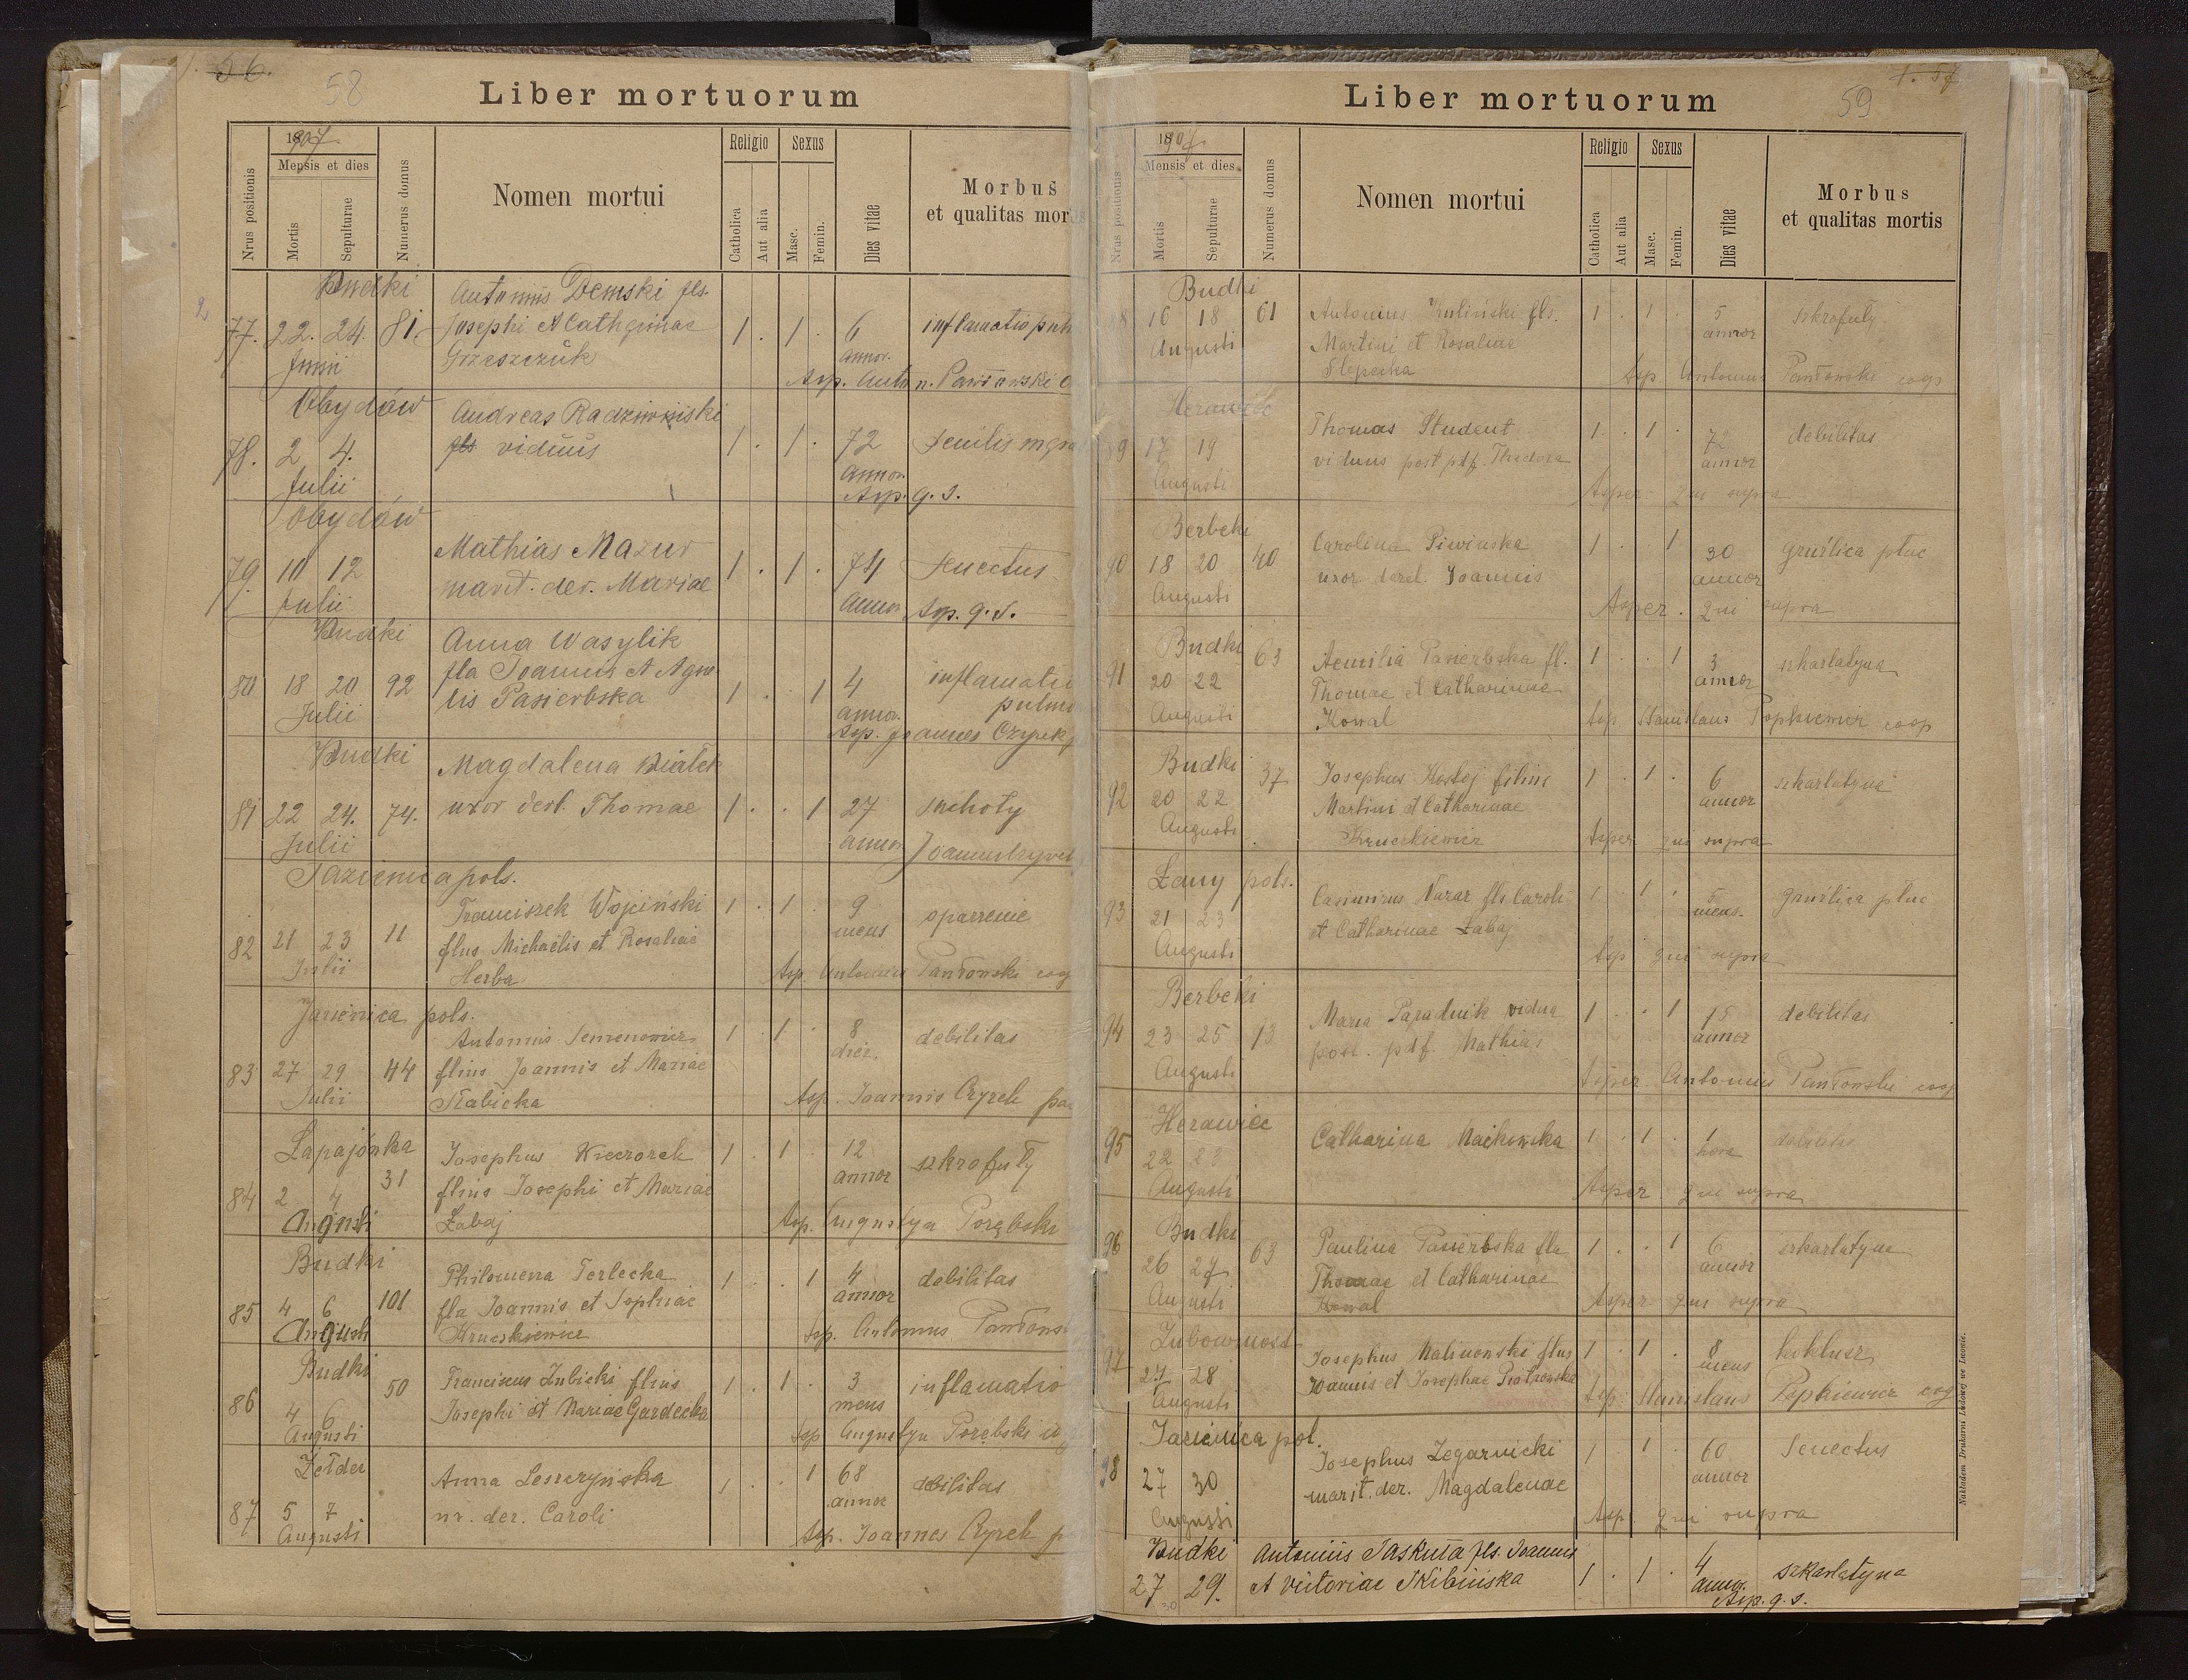 56.
58
Liber mortuorum
1907
Mensis et dies
Nrus positionis
Mortis
Sepulturae
Numerus domus
Nomen mortui
Religio
Catholica
Aut alia
Sexus
Masc.
Femin.
Dies vitae
Morbus
et qualitas mor
Budki
Antonius Demski fls.
77. 22. 24. 81. Josephi et Catharinae 1 . 1 . 6 inflamatio pul
Junii Grzeszczuk annor.
Asp. Anton. Pawłowski
Obydów
Andreas Radziwiński
78. 2 4. viduus 1 . 1 . 72 senilis
Julii annor.
Asp. q. s.
Obydów
Mathias Mazur
79. 10 12 marit. der. Mariae 1 . 1 . 74 senectus
Julii annor Asp. q. s.
Budki
Anna Wasylik
fla Joannis et Agne-
80 18 20 92 tis Pasierbska 1 . . 1 4 inflamatio
Julii annor. pulmo
Asp. Joannes Czyrek
Budki
Magdalena Białek
81 22 24. 74. uxor derl. Thomae 1 . . 1 27 suchoty
Julii annor
Jazienica pols.
Franciszek Wojciński 1 . 1 . 9 oparzenie
82 21 23 11 flus Michaëlis et Rosaliae mens
Julii Herba
Asp. Antonius Pawłowski
Jazienica pols.
Antonius Semenowicz 1 . 1 . 8 debilitas
83 27 29 44 flius Joannis et Mariae dier.
Julii Słabicka Asp. Joannis Czyrek
Łapajówka
Josephus Kieczorek 1 . 1 . 12 szkrofuły
84 2 4 31 flius Josephi et Mariae annor
Augusti Łabaj Asp. Augustyn Porębski
Budki
Philomena Terlecka 1 . . 1 4 debilitas
85 4 6 101 fla Joannis et Sophiae annor
Augusti Kruczkiewicz Asp. Antonius
Budki
Franciscus Zubicki flius 1 . 1 . 3 inflamatio
86 4 6 50 Josephi et Mariae Gardecka mens
Augusti Asp Augustyn Porębski
Żełdec
Anna Leszczyńska 1 . . 1 68 debilitas
87 5 7 ux. der. Caroli annor
Augusti Asp. Joannes Czyrek p
f. 57
59
Liber mortuorum
1907
Mensis et dies
Nrus positionis
Mortis
Sepulturae
Numerus domus
Nomen mortui
Religio
Catholica
Aut alia
Sexus
Masc.
Femin.
Dies vitae
Morbus
et qualitas mortis
Budki
88 16 18 61 Antonius Kuliński fls. 1 . 1 . 5 szkrofuły
Augusti Martini et Rosaliae annor
Asp. Antonius Pawłowski
Herawiec
89 17 19 Thomas Student 1 . 1 . 72 debilitas
Augusti viduus post pdf. Theodora annor
Asper qui supra
Berbeki
90 18 20 40 Carolina Piwińska 1 . . 1 30 gruźlica płuc
Augusti uxor derel. Joannis annor
Asper. qui supra
Budki
91 20 22 63 Aemilia Pasierbska fl. 1 . . 1 3 szkarlatyna
Augusti Thomae et Catharinae annor
Kowal Asp. Stanislaus Popkiewicz coop
Budki
92 20 22 37 Josephus Kostoj filius 1 . 1 . 6 szkarlatyna
Augusti Martini et Catharinae annor
Kruczkiewicz Asper qui supra
Łany pols.
93 21 23 Casimirus fls Caroli 1 . 1 . 5 gruźlica płuc
Augusti et Catharinae Łabaj mens.
Asp qui supra
Berbeki
94 23 25 13 Maria Paradnik vidua 1 . . 1 75 debilitas
Augusti post. pdf. Mathias annor
Asper Antonius Pawłowski coop
Herawiec
95 22 23 Catharina Maikowska 1 . 1 . 1 debilitas
Augusti hora
Asper qui supra
Budki
96 26 27 63 Paulina Pasierbska fla 1 . . 1 6 szkarlatyna
Augusti Thomae et Catharinae annor
Kowal Asper qui supra
Zubowmost
97 27 28 Josephus Malinowski flus 1 . 1 . 8 koklusz
Augusti Joannis et Josephae Piotrowska mens
Asp. Stanislaus Popkiewicz
Jazienica pol.
98 27 30 Josephus Zegarnicki 1 . 1 . 60 Senectus
Augusti marit. der. Magdalenae annor
Asp. qui supra
Budki Antonius Taskuła fls. Joannis
27 29. et Victoriae Skibińska 1 . 1 . 4 szkarlatyna
30 annor.
Asp. q. s.
Nakładem Drukarni Ludowej we Lwowie.